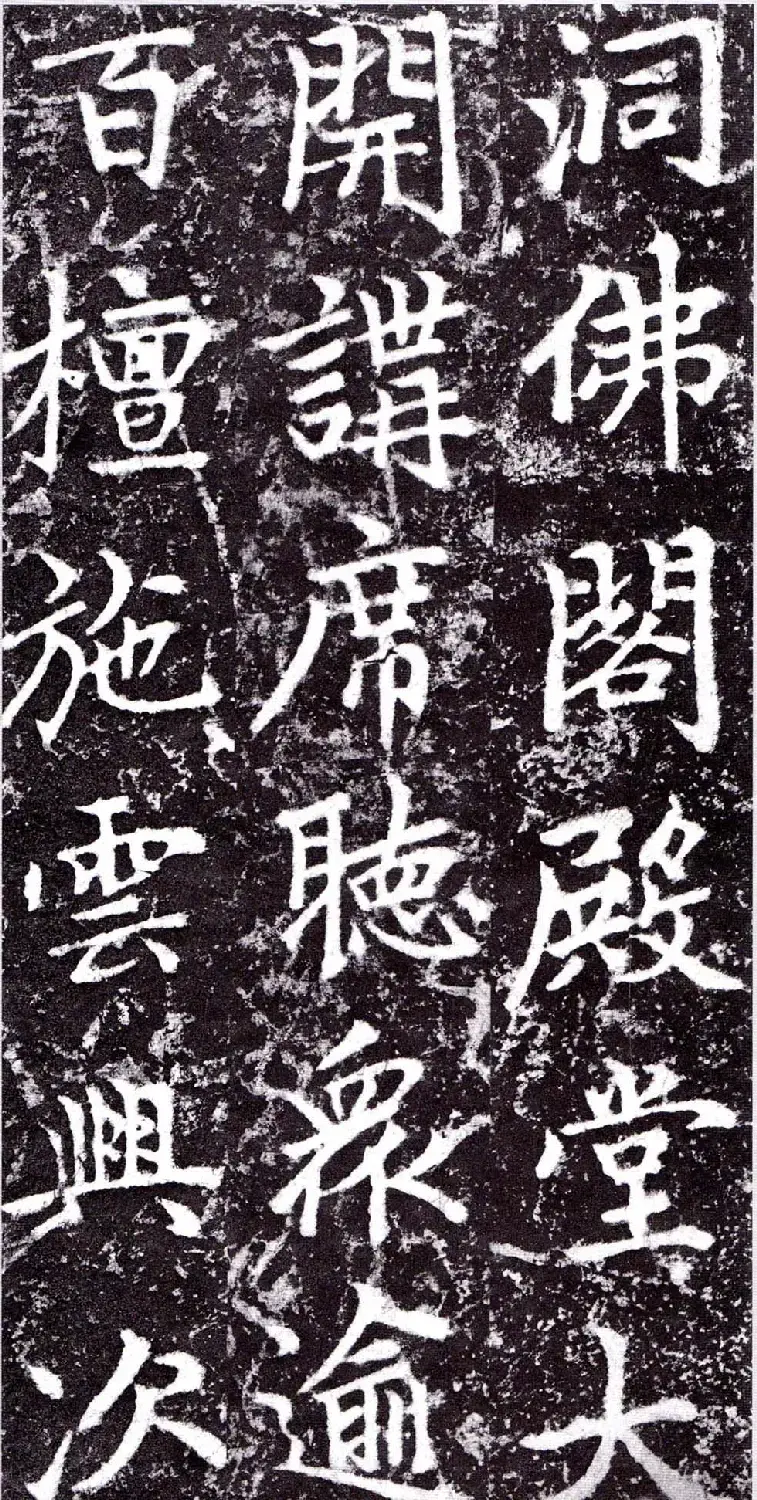 洞佛閣殿堂大
開講席聽眾逾
百檀施雲興次